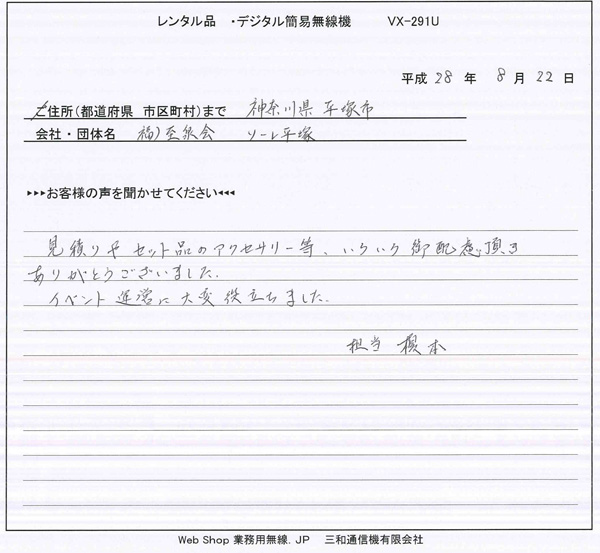 レンタル品 ・デジタル簡易無線機 VX-291U
平成 28 年 8 月 22 日
住所(都道府県 市区町村)まで 神奈川県 平塚市
会社・団体名 福)至泉会 ソーレ平塚
▸▸▸お客様の声を聞かせてください◂◂◂
見積りやセット品のアクセサリー等、いろいろ御配慮頂き
ありがとうございました。
イベント運営に大変役立ちました。
担当 榎本
Web Shop 業務用無線.JP 三和通信機有限会社